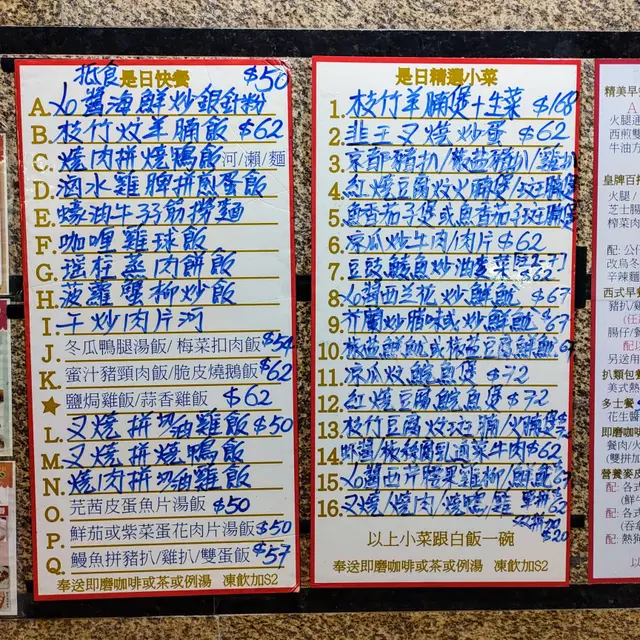 抵食是日快餐 $50
A. XO醬海鮮炒銀針粉
B. 枝竹炆羊腩飯 $62
C. 燒肉拼燒鴨飯河/瀨/麵
D. 滷水雞脾拼煎蛋飯
E. 蠔油牛孖筋撈麵
F. 咖喱雞球飯
G. 瑤柱蒸肉餅飯
H. 菠蘿蟹柳炒飯
I. 干炒肉片河
J. 冬瓜鴨腿湯飯/梅菜扣肉飯 $54
K. 蜜汁豬頸肉飯/脆皮燒鵝飯 $62
★ 鹽焗雞飯/蒜香雞飯 $62
L. 叉燒拼切油雞飯 $50
M. 叉燒拼燒鴨飯
N. 燒肉拼切油雞飯
O. 芫茜皮蛋魚片湯飯 $50
P. 鮮茄或紫菜蛋花肉片湯飯 $50
Q. 鰻魚拼豬扒/雞扒/雙蛋飯 $57
奉送即磨咖啡或茶或例湯 凍飲加S2
是日精選小菜
1. 枝竹羊腩煲+生菜 $168
2. 韭王叉燒炒蛋 $62
3. 京都豬扒/椒鹽豬扒/雞扒
4. 紅燒豆腐炆火腩煲/斑腩煲
5. 魚香茄子煲或魚香茄子斑腩
6. 涼瓜炒牛肉/肉片 $62
7. 豆豉鯪魚炒油麥菜 $62
8. XO醬西兰花炒鮮魷 $67
9. 芥蘭炒腊味或炒鮮魷 $67
10. 椒鹽鮮魷或椒鹽豆腐鮮魷 67
11. 涼瓜炆鯇魚煲 $72
12. 紅燒豆腐鯇魚煲 $72
13. 枝竹豆腐炆斑腩/火腩煲
14. 蝦醬/椒絲腐乳通菜牛肉 $62
15. XO醬西芹腰果雞柳/鮮魷 $67
16. 叉燒/燒肉/燒鴨/雞 單拼 $62
双拼加$20
以上小菜跟白飯一碗
奉送即磨咖啡或茶或例湯 凍飲加S2
精美早
火腿通
西煎雙
牛油方
皇牌百
火腿/
芝士腸
榨菜肉
配: 公仔
改烏冬
辛辣麵
西式早餐
豬扒/雞
腸仔/
另送用
扒類包餐
美式熱
多士餐
花生醬
即磨咖啡
餐肉/
(雙拼加
營養麥皮
配: 各式
配: 各式
配: 熱狗